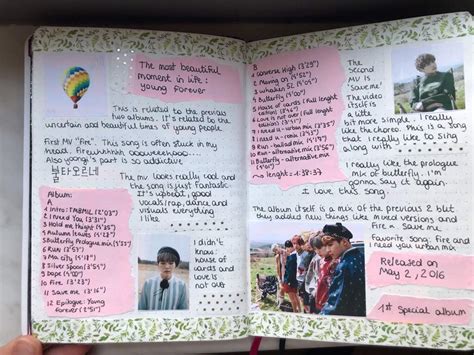 The most beautiful
moment in life:
young forever
This is related to the previous
two albums. It's related to the
uncertain and beautiful times of young people
First MV "Fire". This song is often stuck in my
head.
Also yoongi's part is so addictive
불타오르네
The mv looks really cool and
the song is just fantastic.
It's upbeat, good
vocals, rap, dance and
visuals everything
I like
Album:
A
1 Intro:
2 I Need You (3'31")
3 Hold me tight
4 Autumn leaves
5 Butterfly Prologue mix
6 Run
7 Ma city
8 Silver Spoon
9 Dope
10 Fire (3'23")
11 Save me (3'16")
12 Epilogue: Young
forever (2'51")
I didn't
know:
house of
cards and
love is
not over
B
1 Converse High
2 Moving on
3 Whalien 52
4 Butterfly
5 House of cards (full lenght
edition)
6 Love is not over (full lenght
edition)
7 I need u - urban mix
8 I need u - remix
9 Run - ballad mix
10 Run - alternative mix
11 Butterfly - alternative
mix
lenght =
The
second
MV is
'Save me'
The video
itself is
a little
bit more simple. I really like
the choreo. This is a song
that I really like to sing
along with
I really like the prologue
mix of butterfly. I'm
gonna say it again
I love this song.
The album itself is a mix of the previous 2 but
they added new things like mixed versions and
Fire + Save me
Favorite song: Fire and
I need you urban mix
Released on
May 2, 2016
1# Special album